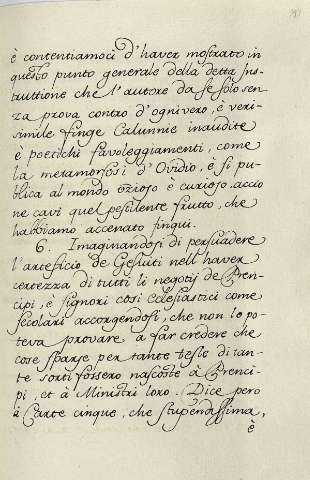 è contentiamoci d'haver mostrato in
questo punto generale della detta Ins-
truttione che l'autore da se solo sen-
za prova contro d'ogni vero, è veri-
simile finge Calunnie inaudite
è poetichi favoleggiamenti, come
la metamorfosi d'Ovidio, è si pu-
blica al mondo ozioso è curioso, accio
ne cavi quel pestilente frutto, che
habbiamo accenato finqui.
6. Imaginandosi di persuadere
l'arteficio de Gesuiti nell haver
certezza di tutti li negotij de Pren-
cipi, è signori cosi eclesiastici come
secolari accorgendosi, che non lo po-
teva provare a far credere che
cose sparse per tante teste di tan-
te sorti fossero nascoste à Prenci-
pi, et à Ministri loro. Dice pero
à Carte cinque, che stupendissima,
è